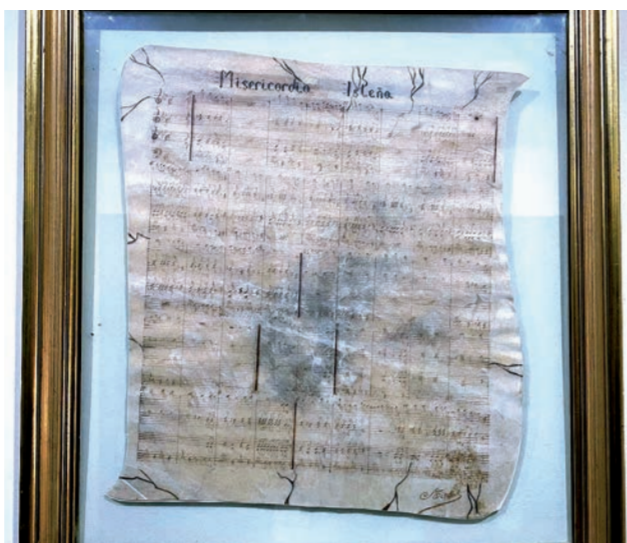 Misericordia Isleña